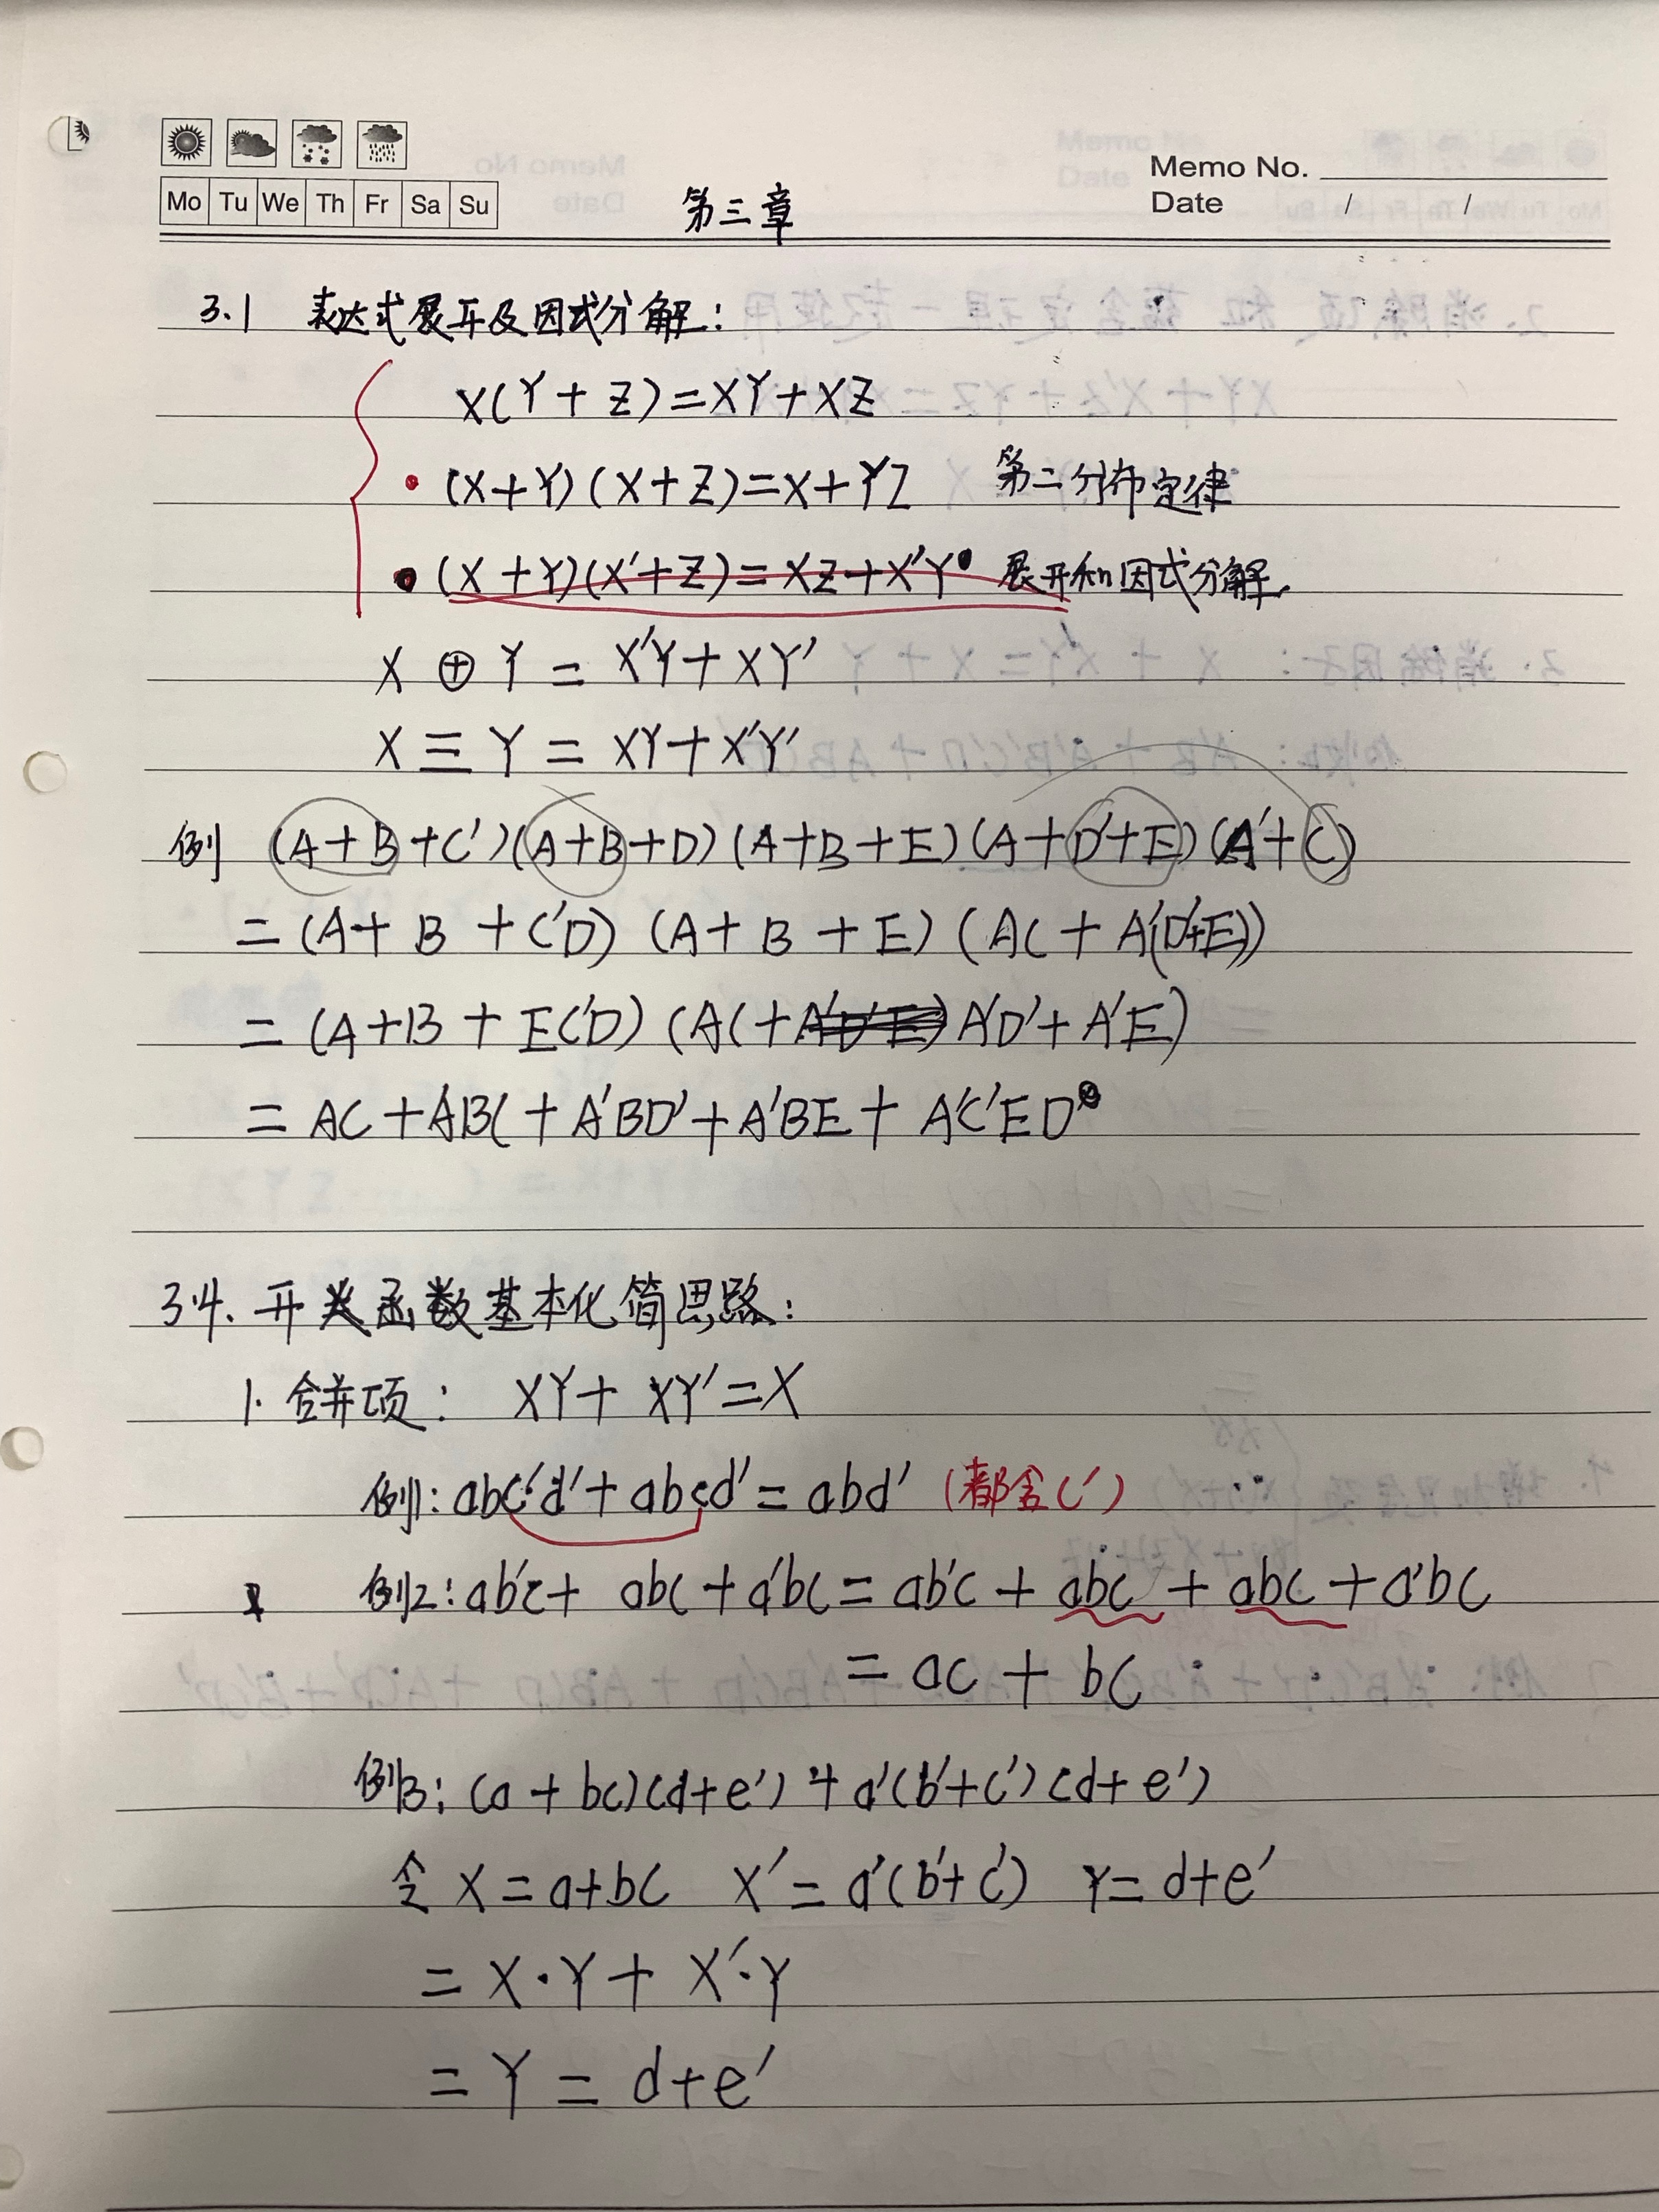 Mo Tu We Th Fr Sa Su
Memo No.
Date / /
第三章
3.1 表达式展开及因式分解:
X(Y+Z)=XY+XZ
• (X+Y)(X+Z)=X+YZ 第二分布定律
• (X+Y)(X'+Z)=XZ+X'Y 展开和因式分解.
X⊕Y=X'Y+XY'
X≡Y=XY+X'Y'
例 (A+B+C')(A+B+D)(A+B+E)(A+D'+E)(A'+C)
=(A+B+C'D)(A+B+E)(AC+A'(D'+E))
=(A+B+EC'D)(AC+A'D'+A'E)
=AC+ABC+A'BD'+A'BE+A'C'ED
34. 开关函数基本化简思路:
1. 合并项: XY+XY'=X
例1: abc'd'+abcd'=abd' (都含c')
例2: ab'c+abc+a'bc=ab'c+abc+abc+a'bc
=ac+bc
例3: (a+bc)(d+e')+a'(b'+c')(d+e')
令 X=a+bc X'=a'(b'+c') Y=d+e'
=X·Y+X'·Y
=Y=d+e'